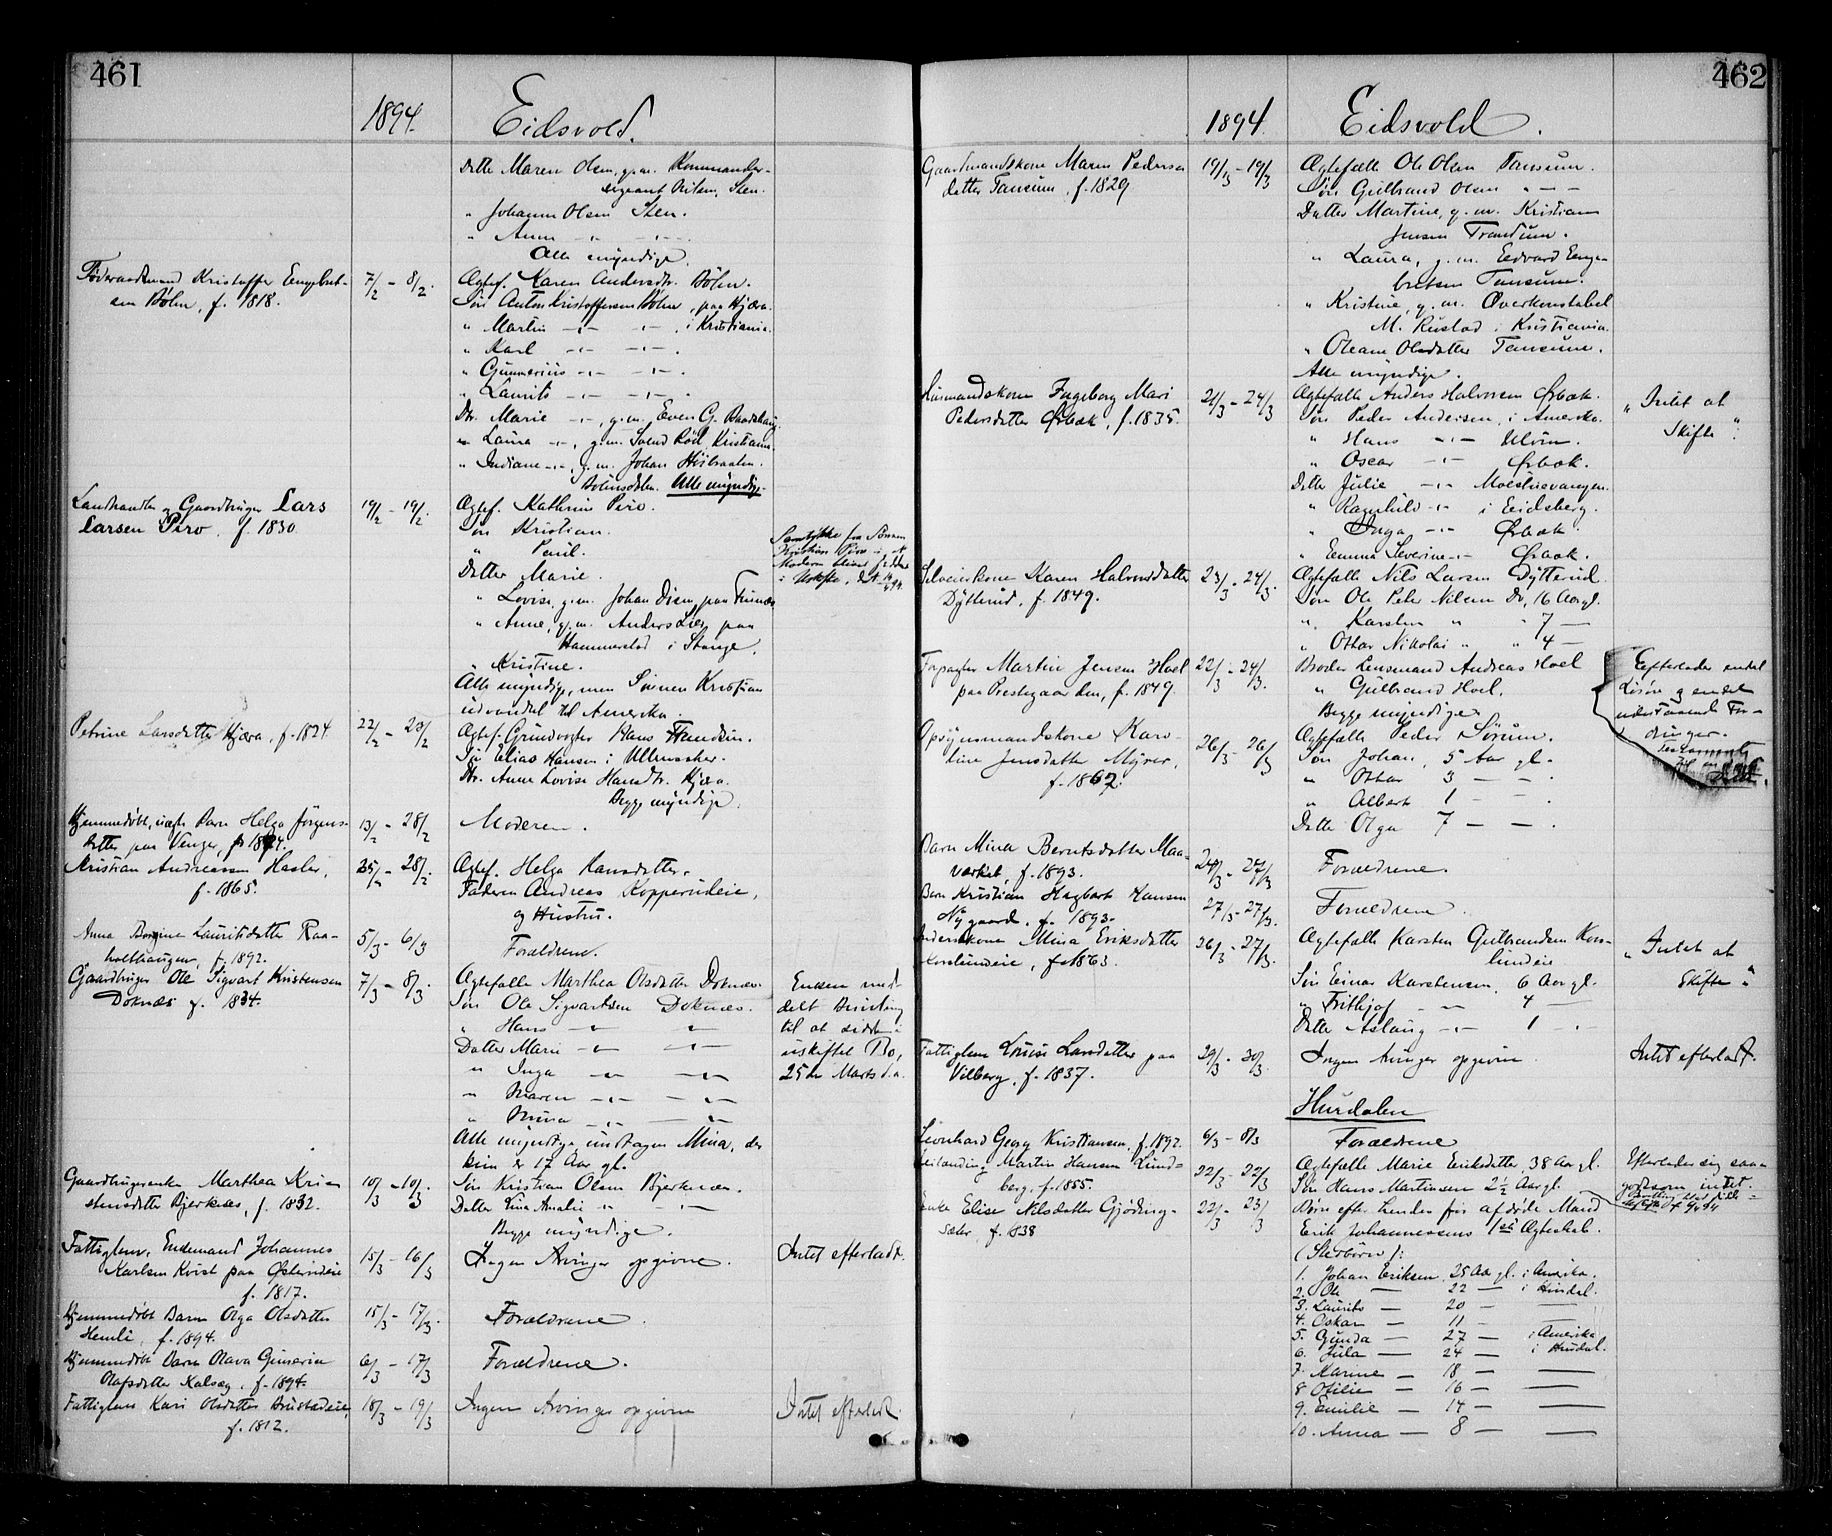 461
1894.
Eidsvold.
Datter Maren Olsen, g.m. Kommander-
sergeant Nilsen, Sten.
" Johanne Olsen Sten.
" Anne -"- -"-
Alle myndige.
Føderaadsmand Kristoffer Engebret-
sen Bøhn, f. 1818.
7/2 - 8/2.
Ægtef. Karen Andersdtr. Bøhn.
Søn Anton Kristoffersen Bøhn, paa Kjæra.
" Martin -"- -"-, i Kristiania.
" Karl -"- -"-.
" Gunnerius -"- -"-.
" Laurits -"- -"-.
Dtr. Marie -"-, g.m. Even G. Baadshaug.
" Laura -"-, g.m. Svend Rød, Kristiania.
" Indiane -"-, g.m. Johan Høibraaten.
Bøhnsdalen. Alle myndige.
Landhandler og Gaardbruger Lars
Larsen Piro, f. 1830.
19/2 - 19/2.
Ægtef. Kathrine Piro.
Søn Kristian.
" Paul.
Datter Marie.
" Lovise, g.m. Johan Disen, paa
" Anne, g.m. Anders Lier, paa
Hammerstad i Stange.
" Kristine.
Alle myndige, men Sønnen Kristian
udvandret til Amerika.
Samtykke fra Sønnen
Kristian Piro i
Moderen
i Uskifte,
Petrine Larsdatter Kjæra, f. 1824
22/2 - 23/2
Ægtef. Grundvogter Hans Frandsen.
Søn Elias Hansen i Ullensaker.
Dtr. Anne Lovise Hansdtr. Kjæra.
Begge myndige.
Hjemmedøbt, uægte Barn Helga Jørgens-
datter paa Venger, f. 1894.
13/2 - 28/2
Moderen.
Kristian Andreassen Hasler,
f. 1865.
25/2 - 28/2
Ægtef. Helga Hansdatter.
Faderen Andreas Kopperudeie,
og Hustru.
Anna Bergine Lauritsdatter Raa-
holthaugen, f. 1892.
5/3 - 6/3
Forældrene.
Gaardbruger Ole Sigvart Kristensen
Doknæs f. 1834.
7/3 - 8/3.
Ægtefælle Marthea Olsdatter Doknæs.
Søn Ole Sigvartsen Doknæs.
" Hans -"- -"-
Datter Marie -"- -"-
" Inga -"- -"-
" Maren -"- -"-
" Mina -"- -"-
Alle myndige undtagen Mina, der
kun er 17 Aar gl.
Enken med-
delt Bevilling
til at sidde i
uskiftet Bo,
25de Marts d.a.
Gaardbrugerenke Marthea Kri-
stensdatter Bjerknæs, f. 1832.
10/3 - 10/3
Søn Kristian Olsen Bjerknæs.
Datter Lina Amalie " -"-
Begge myndige.
Fattiglem, Enkemand Johannes
Karlsen Kvist paa Østerudeie
f. 1817.
15/3 - 16/3
Ingen Arvinger opgivne.
Intet efterladt.
Hjemmedøbt Barn Olga Olsdatter
Hemli, f. 1894.
15/3 - 17/3.
Forældrene.
Hjemmedøbt Barn Olava Gunerine
Olafsdatter Kalsæg, f. 1894.
6/3 - 17/3
Forældrene.
Fattiglem Kari Olsdatter Brustadeie,
f. 1812.
18/3 - 19/3
Ingen Arvinger opgivne
Intet efterladt.
462
1894.
Eidsvold.
Gaardmandskone Maren Peders-
datter Tansum, f. 1829
19/3 - 19/3
Ægtefælle Ole Olsen Tansum.
Søn Gulbrand Olsen " - -
Datter Martine, g.m. Kristian
Jensen Trandum.
" Laura, g.m. Edvard Enge-
bretsen Tansum.
" Kristine, g.m. Overkonstabel
M. Rustad i Kristiania.
" Oleane Olsdatter Tansum.
Alle myndige.
Husmandskone Ingeborg Mari
Pedersdatter Ørbæk, f. 1835.
21/3 - 24/3
Ægtefælle Anders Halvorsen Ørbæk.
Søn Peder Andersen, i Amerika.
" Hans -"- Ulvin.
" Oscar -"- Ørbæk.
Datter Julie -"- Moestuevangen.
" Ragnhild -"- i Eidsberg.
" Inga -"- Ørbæk.
" Emma Severine -"- Ørbæk.
" Intet at
Skifte "
Selveierkone Karen Halvorsdatter
Dytterud, f. 1849.
23/3 - 24/3.
Ægtefælle Nils Larsen Dytterud.
Søn Ole Peter Nilsen Do, 16 Aar gl.
" Karsten " " 7 —
" Othar Nikolai " " 4 —
Forpagter Martin Jensen Hoel
paa Prestegaarden, f. 1849.
22/3 - 24/3.
Broder Lensmand Andreas Hoel
" Gulbrand Hoel.
Begge myndige.
Efterlader endel
Løsøre og endel
udestaaende For-
dringer.
Testamente
Opsynsmandskone Karo-
line Jensdatter Myrer,
f. 1862.
26/3 - 26/3
Ægtefælle Peder Sørum.
Søn Johan, 5 Aar gl.
" Othar 3 — —.
" Albert 1 — —.
Datter Olga 7 — —.
Barn Mina Berntsdatter Maa-
værket, f. 1893.
24/3 - 27/3
Forældrene.
Barn Kristian Hagbart Hansen
Nygaard, f. 1893.
27/3 - 27/3.
Forældrene.
Inderstkone Mina Eriksdatter
Korslundeie, f. 1863.
26/3 - 27/3.
Ægtefælle Karsten Gulbrandsen Kors-
lundeie
Søn Einar Karstensen, 6 Aar gl.
" Frithjof — — 4 —
Datter Aslaug -"- 1 — .
" Intet at
Skifte "
Fattiglem Louise Larsdatter paa
Vilberg, f. 1837.
29/3 - 30/3.
Ingen Arvinger opgivne.
Intet efterladt.
Hurdalen
Leonhard Georg Kristiansen, f. 1892.
6/3 - 8/3
Forældrene
Martin Hansen Lund-
berg, f. 1855.
22/3 - 22/3
Ægtefælle Marie Eriksdatter, 38 Aar gl.
Søn Hans Martinsen 2½ Aar gl.
Efterlader sig saa-
godtsom intet.
Enke Elise Nilsdatter Gjøding-
sæter, f. 1838
22/3 - 23/3
Børn efter hendes før afdøde Mand
Erik Johannessens 1ste Ægteskab.
(Stedbørn):
1. Johan Eriksen 25 Aar gl. i Amerika.
2. Ole — 22 — i Hurdal.
3. Laurits — 20 — —
4. Oskar — 11 — —
5. Gunda — 27 — i Amerika
6. Jula — 24 — i Hurdal.
7. Marine — 18 — —
8. Otilie — 16 — —
9. Emilie — 14 — —
10. Anna — 8 — —